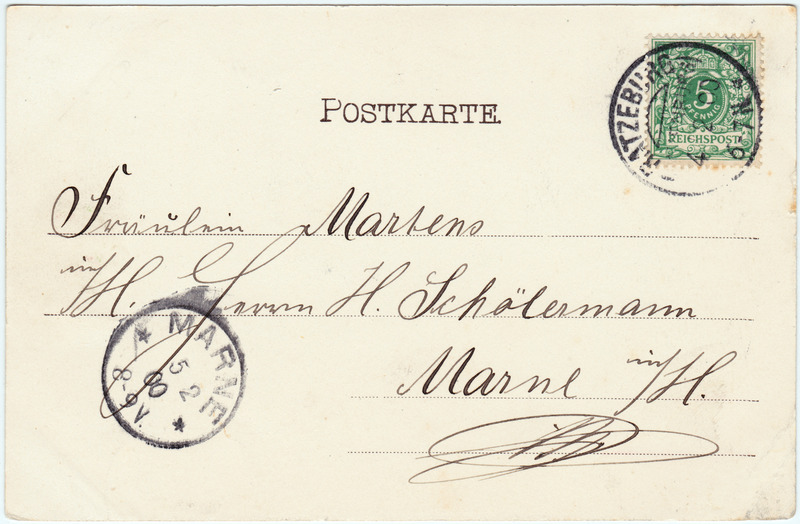 POSTKARTE.
5
PFENNIG
REICHSPOST
RATZEBURG
Fräulein Martens
in/H. Herrn H. Schölermann
Marne in/H.
MARNE
5 2
00
8-9V.